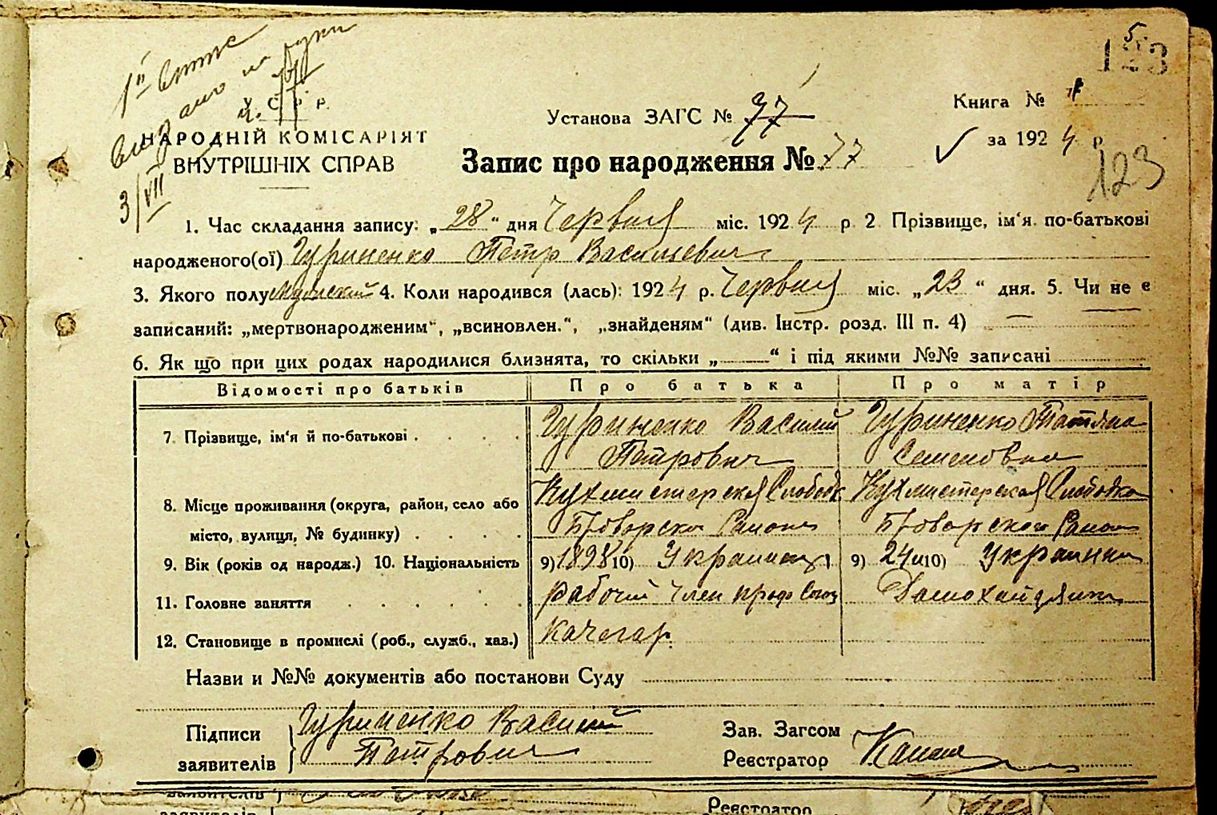 153
1й
видано на руки
3/VII
У. С. Р. Р.
НАРОДНІЙ КОМІСАРІЯТ
ВНУТРІШНІХ СПРАВ
Установа ЗАГС № 77
Книга № 1
за 1924 р
Запис про народження № 77
123
1. Час складання запису: „28" дня Червня міс. 1924 р 2. Прізвище, ім'я. по-батькові
народженого(ої) Гуриненко Петр Васильевич
3. Якого полу Мужский 4. Коли народився (лась): 1924 р. Червня міс. „23" дня. 5. Чи не є
записаний: „мертвонародженим", „всиновлен.", „знайденям" (див. Інстр. розд. III п. 4) —
6. Як що при цих родах народилися близнята, то скільки „—" і під якими №№ записані
Відомості про батьків Про батька Про матір
7. Прізвище, ім'я й по-батькові . Гуриненко Василий Гуриненко Татяна
Петрович Семеновна
8. Місце проживання (округа, район, село або Кухмистерская Слободк Кухмистерская Слободка
місто, вулиця, № будинку) Броварско Района Броварского Района
9. Вік (років од народж.) 10. Національність 9) 1898 10) Украинец 9) 24 10) Украинка
11. Головне заняття рабочий член проф Союз Дамохайзяика
12. Становище в промислі (роб., служб., хаз.) Качегар.
Назви и №№ документів або постанови Суду
Підписи Гуриненко Василий Зав. Загсом
заявителів Петрович Реєстратор
заявителів Реєстратор